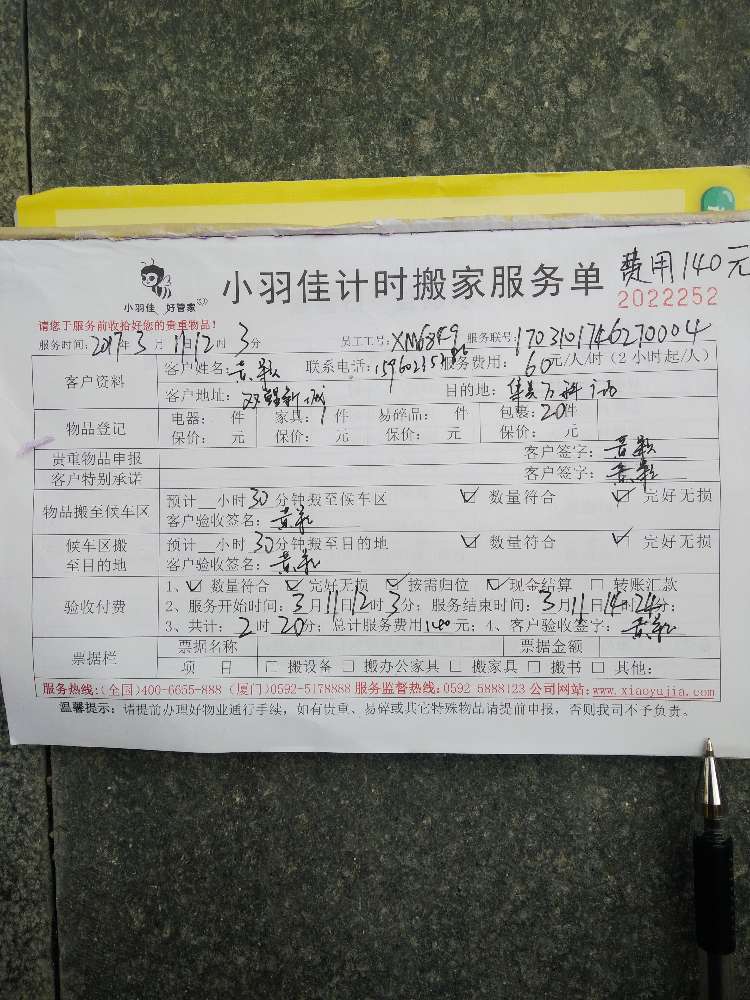 小羽佳 好管家
小羽佳计时搬家服务单 费用140元
2022252
请您于服务前收拾好您的贵重物品!
服务时间: 2017年3月11日12时3分 员工工号: 服务联号: 1703101746270004
客户资料 客户姓名: 联系电话: 服务费用: 60元/人/时 (2小时起/人)
客户地址: 目的地: 集美万科
物品登记 电器: 件 家具: 1件 易碎品: 件 包裹: 20件
保价: 元 保价: 元 保价: 元 保价: 元
贵重物品申报 客户签字:
客户特别承诺 客户签字:
物品搬至候车区 预计__小时30分钟搬至候车区 ☑ 数量符合 ☑ 完好无损
客户验收签名:
候车区搬至目的地 预计__小时30分钟搬至目的地 ☑ 数量符合 ☑ 完好无损
客户验收签名:
验收付费 1、☑ 数量符合 ☑ 完好无损 ☑ 按需归位 ☑ 现金结算 □ 转账汇款
2、服务开始时间: 3月11日12时3分; 服务结束时间: 3月11日14时24分;
3、共计: 2时20分; 总计服务费用140元; 4、客户验收签字:
票据栏 票据名称 票据金额
项 目 □ 搬设备 □ 搬办公家具 □ 搬家具 □ 搬书 □ 其他:
服务热线:(全国)400-6655-888 (厦门)0592-5178888 服务监督热线:0592 5888123 公司网站:www.xiaoyujia.com
温馨提示: 请提前办理好物业通行手续, 如有贵重、易碎或其它特殊物品请提前申报, 否则我司不予负责。